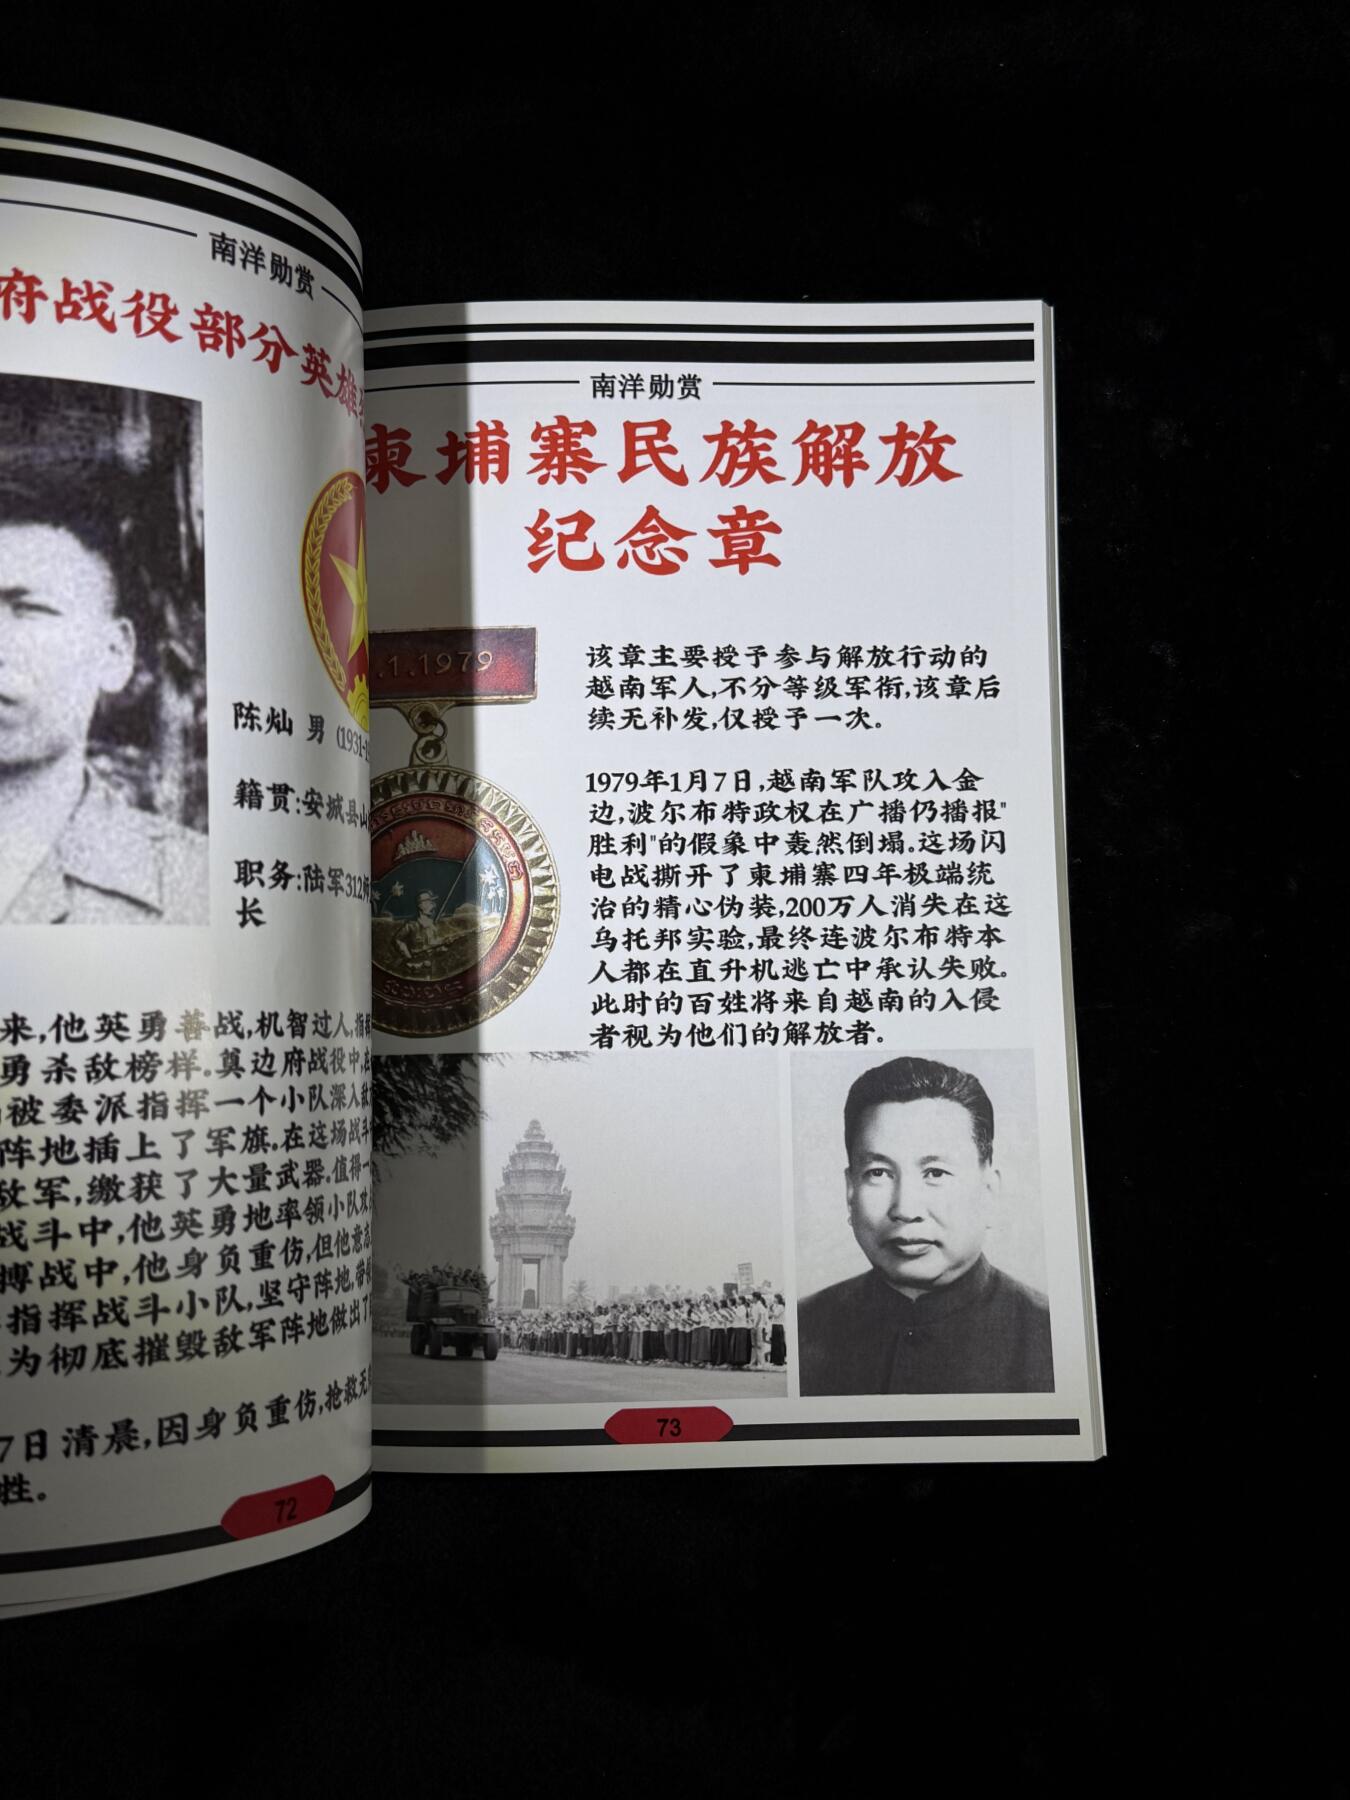 南洋勋赏
府战役部分英雄
陈灿 男 (1931-1
籍贯:安城县山
职务:陆军312师
长
来,他英勇善战,机智过人,指挥
勇杀敌榜样.奠边府战役中,在
被委派指挥一个小队深入敌
阵地插上了军旗.在这场战斗
敌军,缴获了大量武器.值得一
战斗中,他英勇地率领小队攻
搏战中,他身负重伤,但他意志
指挥战斗小队,坚守阵地,带领
为彻底摧毁敌军阵地做出了
7日清晨,因身负重伤,抢救无
牲。
72
南洋勋赏
柬埔寨民族解放
纪念章
.1.1979
该章主要授予参与解放行动的
越南军人,不分等级军衔,该章后
续无补发,仅授予一次。
1979年1月7日,越南军队攻入金
边,波尔布特政权在广播仍播报"
胜利"的假象中轰然倒塌.这场闪
电战撕开了柬埔寨四年极端统
治的精心伪装,200万人消失在这
乌托邦实验,最终连波尔布特本
人都在直升机逃亡中承认失败。
此时的百姓将来自越南的入侵
者视为他们的解放者。
73